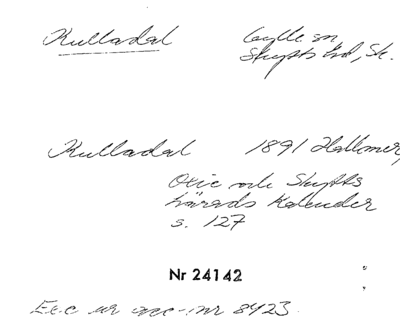 Kulladal
Gylle sn
Skytts hd, Sk.
Kulladal 1891 Hallmer,
Oxie och Skytts
härads Kalender
s. 127
Nr 24142
Exc ur acc-nr 8423.